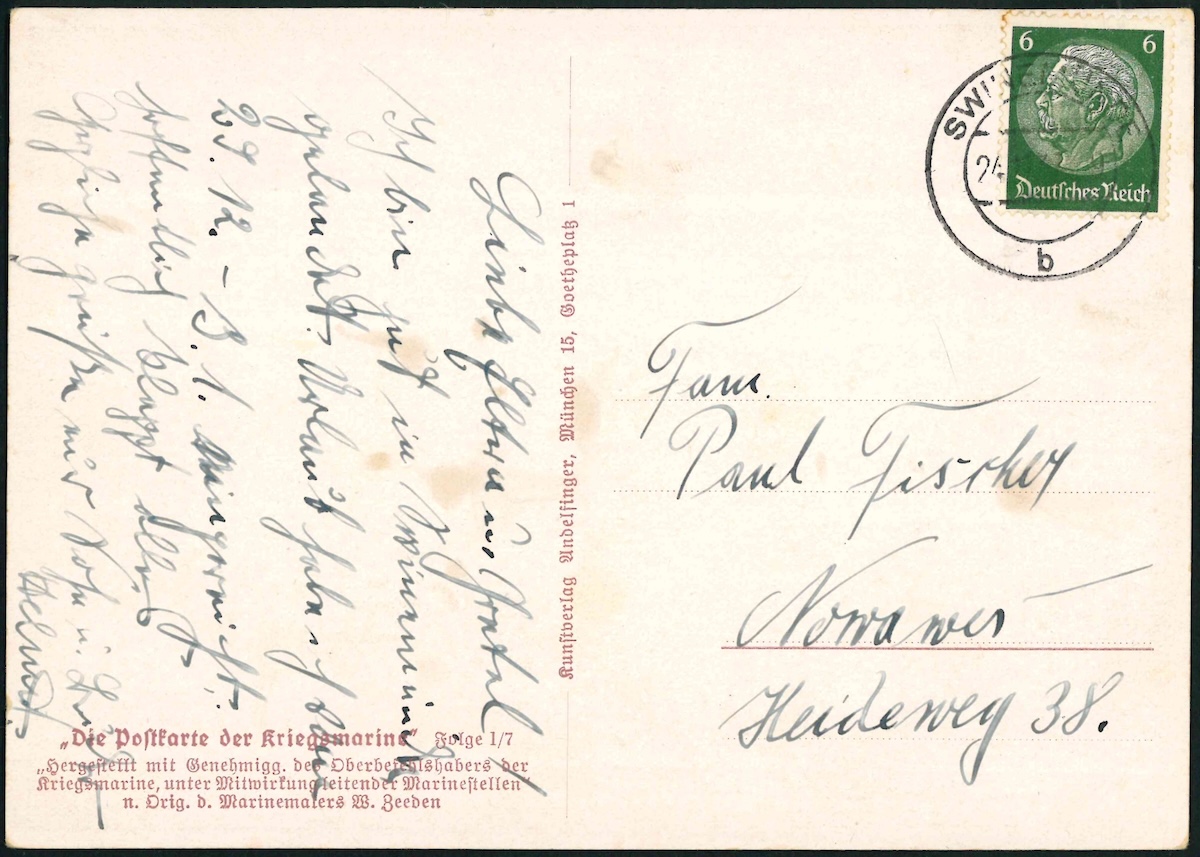 Liebe Eltern und Fratel!
Ich bin gut in Swinemünde
gelandet. Urlaub habe ich vom
23.12. – 3.1. eingereicht.
Hoffentlich klappt alles
Herzliche Grüße euer Sohn u.
Helmut.
„Die Postkarte der Kriegsmarine“ Folge 1/7
„Hergestellt mit Genehmigg. des Oberbefehlshabers der
Kriegsmarine, unter Mitwirkung leitender Marinestellen“
n. Orig. d. Marinemalers W. Zeeden
Kunstverlag Andelfinger, München 15, Goetheplatz 1
6 6
Deutsches Reich
b
Fam.
Paul Fischer
Nowawes
Heideweg 38.